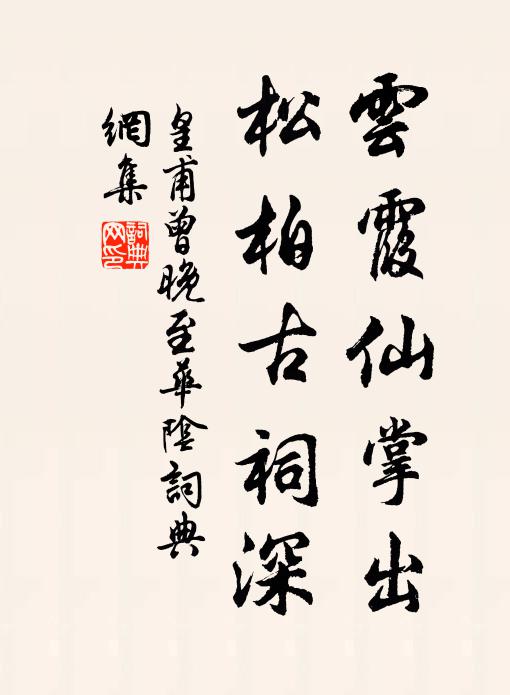 雲霞仙掌出
松柏古祠深
皇甫曾晚至華陰詞典
網集
詞典
网印